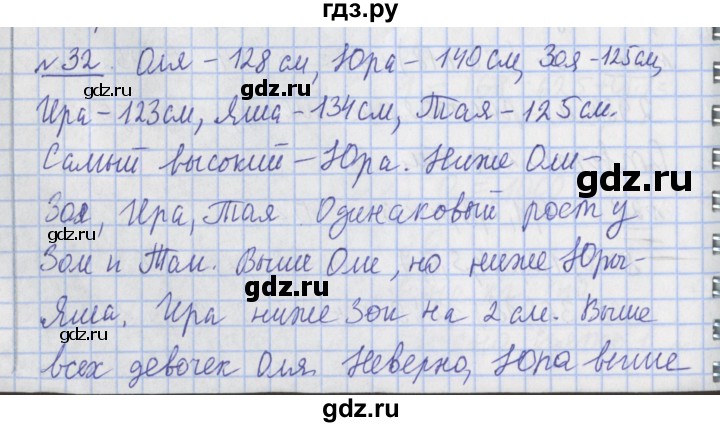 гдз.ру
№32. Оля – 128 см, Юра – 140 см, Зоя – 125 см,
gdz.ru
Ира – 123 см, Яша – 134 см, Тая – 125 см.
gdz.ru
Самый высокий – Юра. Ниже Оли –
gdz.ru
Зоя, Ира, Тая. Одинаковый рост у
gdz.ru
Зои и Таи. Выше Оли, но ниже Юры –
gdz.ru
Яша. Ира ниже Зои на 2 см. Выше
gdz.ru
всех девочек Оля. Неверно, Юра выше
gdz.ru
gdz.ru